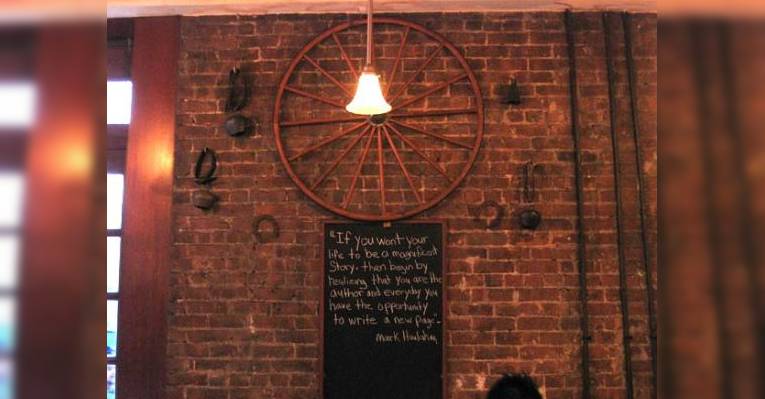 "If you wont your
life to be a magnificent
Story, then begin by
realizing that you are the
author and everyday you
have the opportunity
to write a new page".
Mark Houlahan